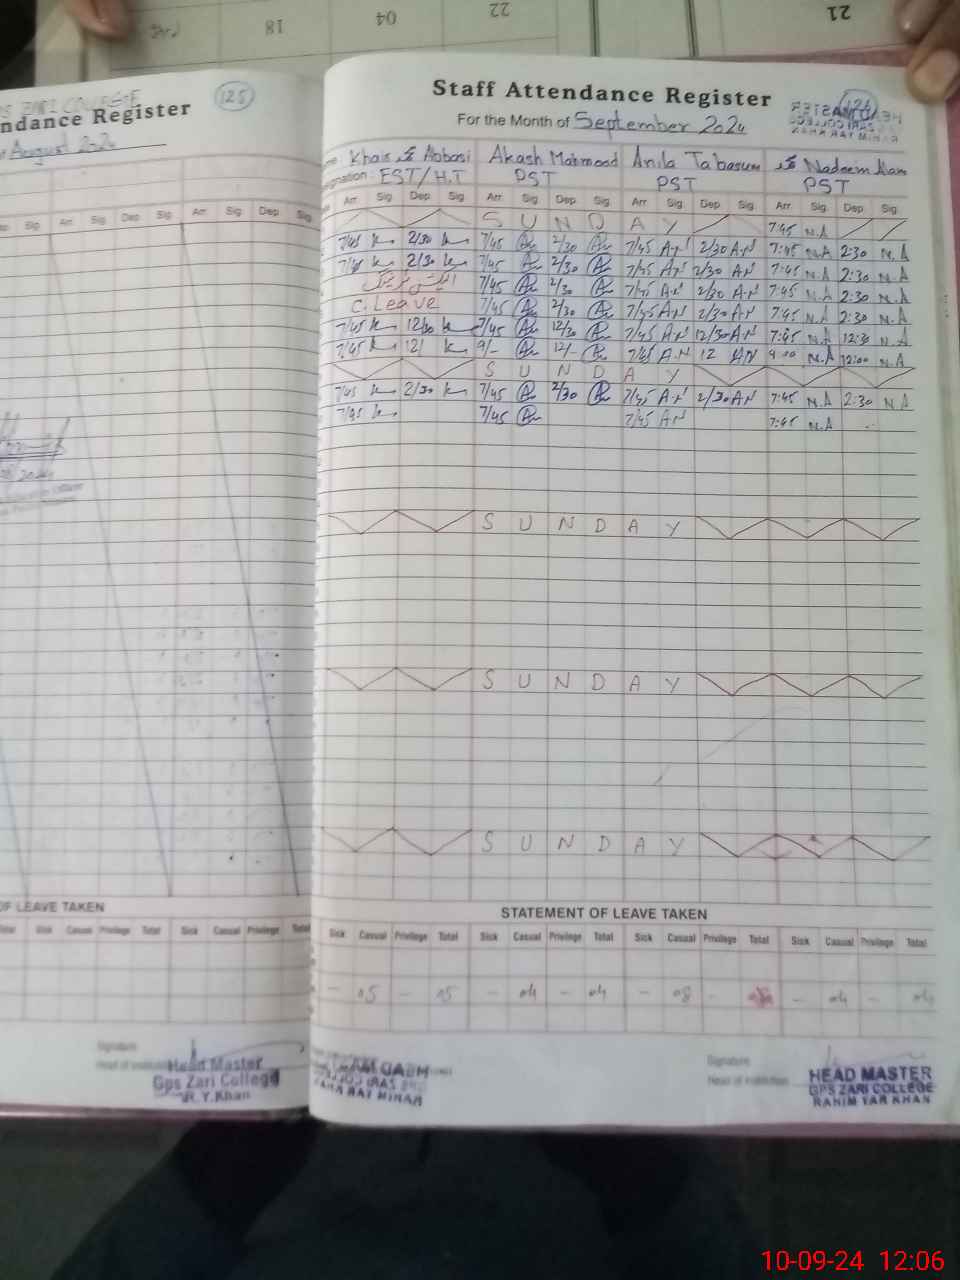 22
04
18
21
ndance Register
August 2024
125
Staff Attendance Register
For the Month of September 2024
Abbasi Akash Mahmood Anila Tabasum Nadeem
EST/H.T PST PST PST
Sig Arr Sig Dep Sig Arr Sig Dep Sig
Arr Sig Dep Sig Arr Sig Dep Sig Arr Sig Dep Sig Arr Sig Dep Sig
S U N D A Y 7:45 N.A
7/45 2/30 7/45 2/30 7/45 A.N 2/30 A.N 7:45 N.A 2:30 N.A
7/45 2/30 7/45 2/30 7/45 A.N 2/30 A.N 7:45 N.A 2:30 N.A
7/45 2/30 7/45 A.N 2/30 A.N 7:45 N.A 2:30 N.A
C. Leave 7/45 2/30 7/45 A.N 2/30 A.N 7:45 N.A 2:30 N.A
7/45 12/30 7/45 12/30 7/45 A.N 12/30 A.N 7:45 N.A 12:30 N.A
7/45 12/ 9/- 12/- 7/45 A.N 12 A.N 9:00 N.A 12:00 N.A
S U N D A Y
7/45 2/30 7/45 2/30 7/45 A.N 2/30 A.N 7:45 N.A 2:30 N.A
7/45 7/45 7/45 A.N 7:45 N.A
S U N D A Y
S U N D A Y
S U N D A Y
OF LEAVE TAKEN
Total Sick Casual Privilege Total Sick Casual Privilege Total
STATEMENT OF LEAVE TAKEN
Sick Casual Privilege Total Sick Casual Privilege Total Sick Casual Privilege Total Sick Casual Privilege Total
- 05 - 05 - 04 - 04 - 08 - 08 - 04 - 04
Signature
Head of Institution
Head Master
Gps Zari College
R.Y.Khan
Signature
Head of Institution
HEAD MASTER
GPS ZARI COLLEGE
RAHIM YAR KHAN
10-09-24 12:06